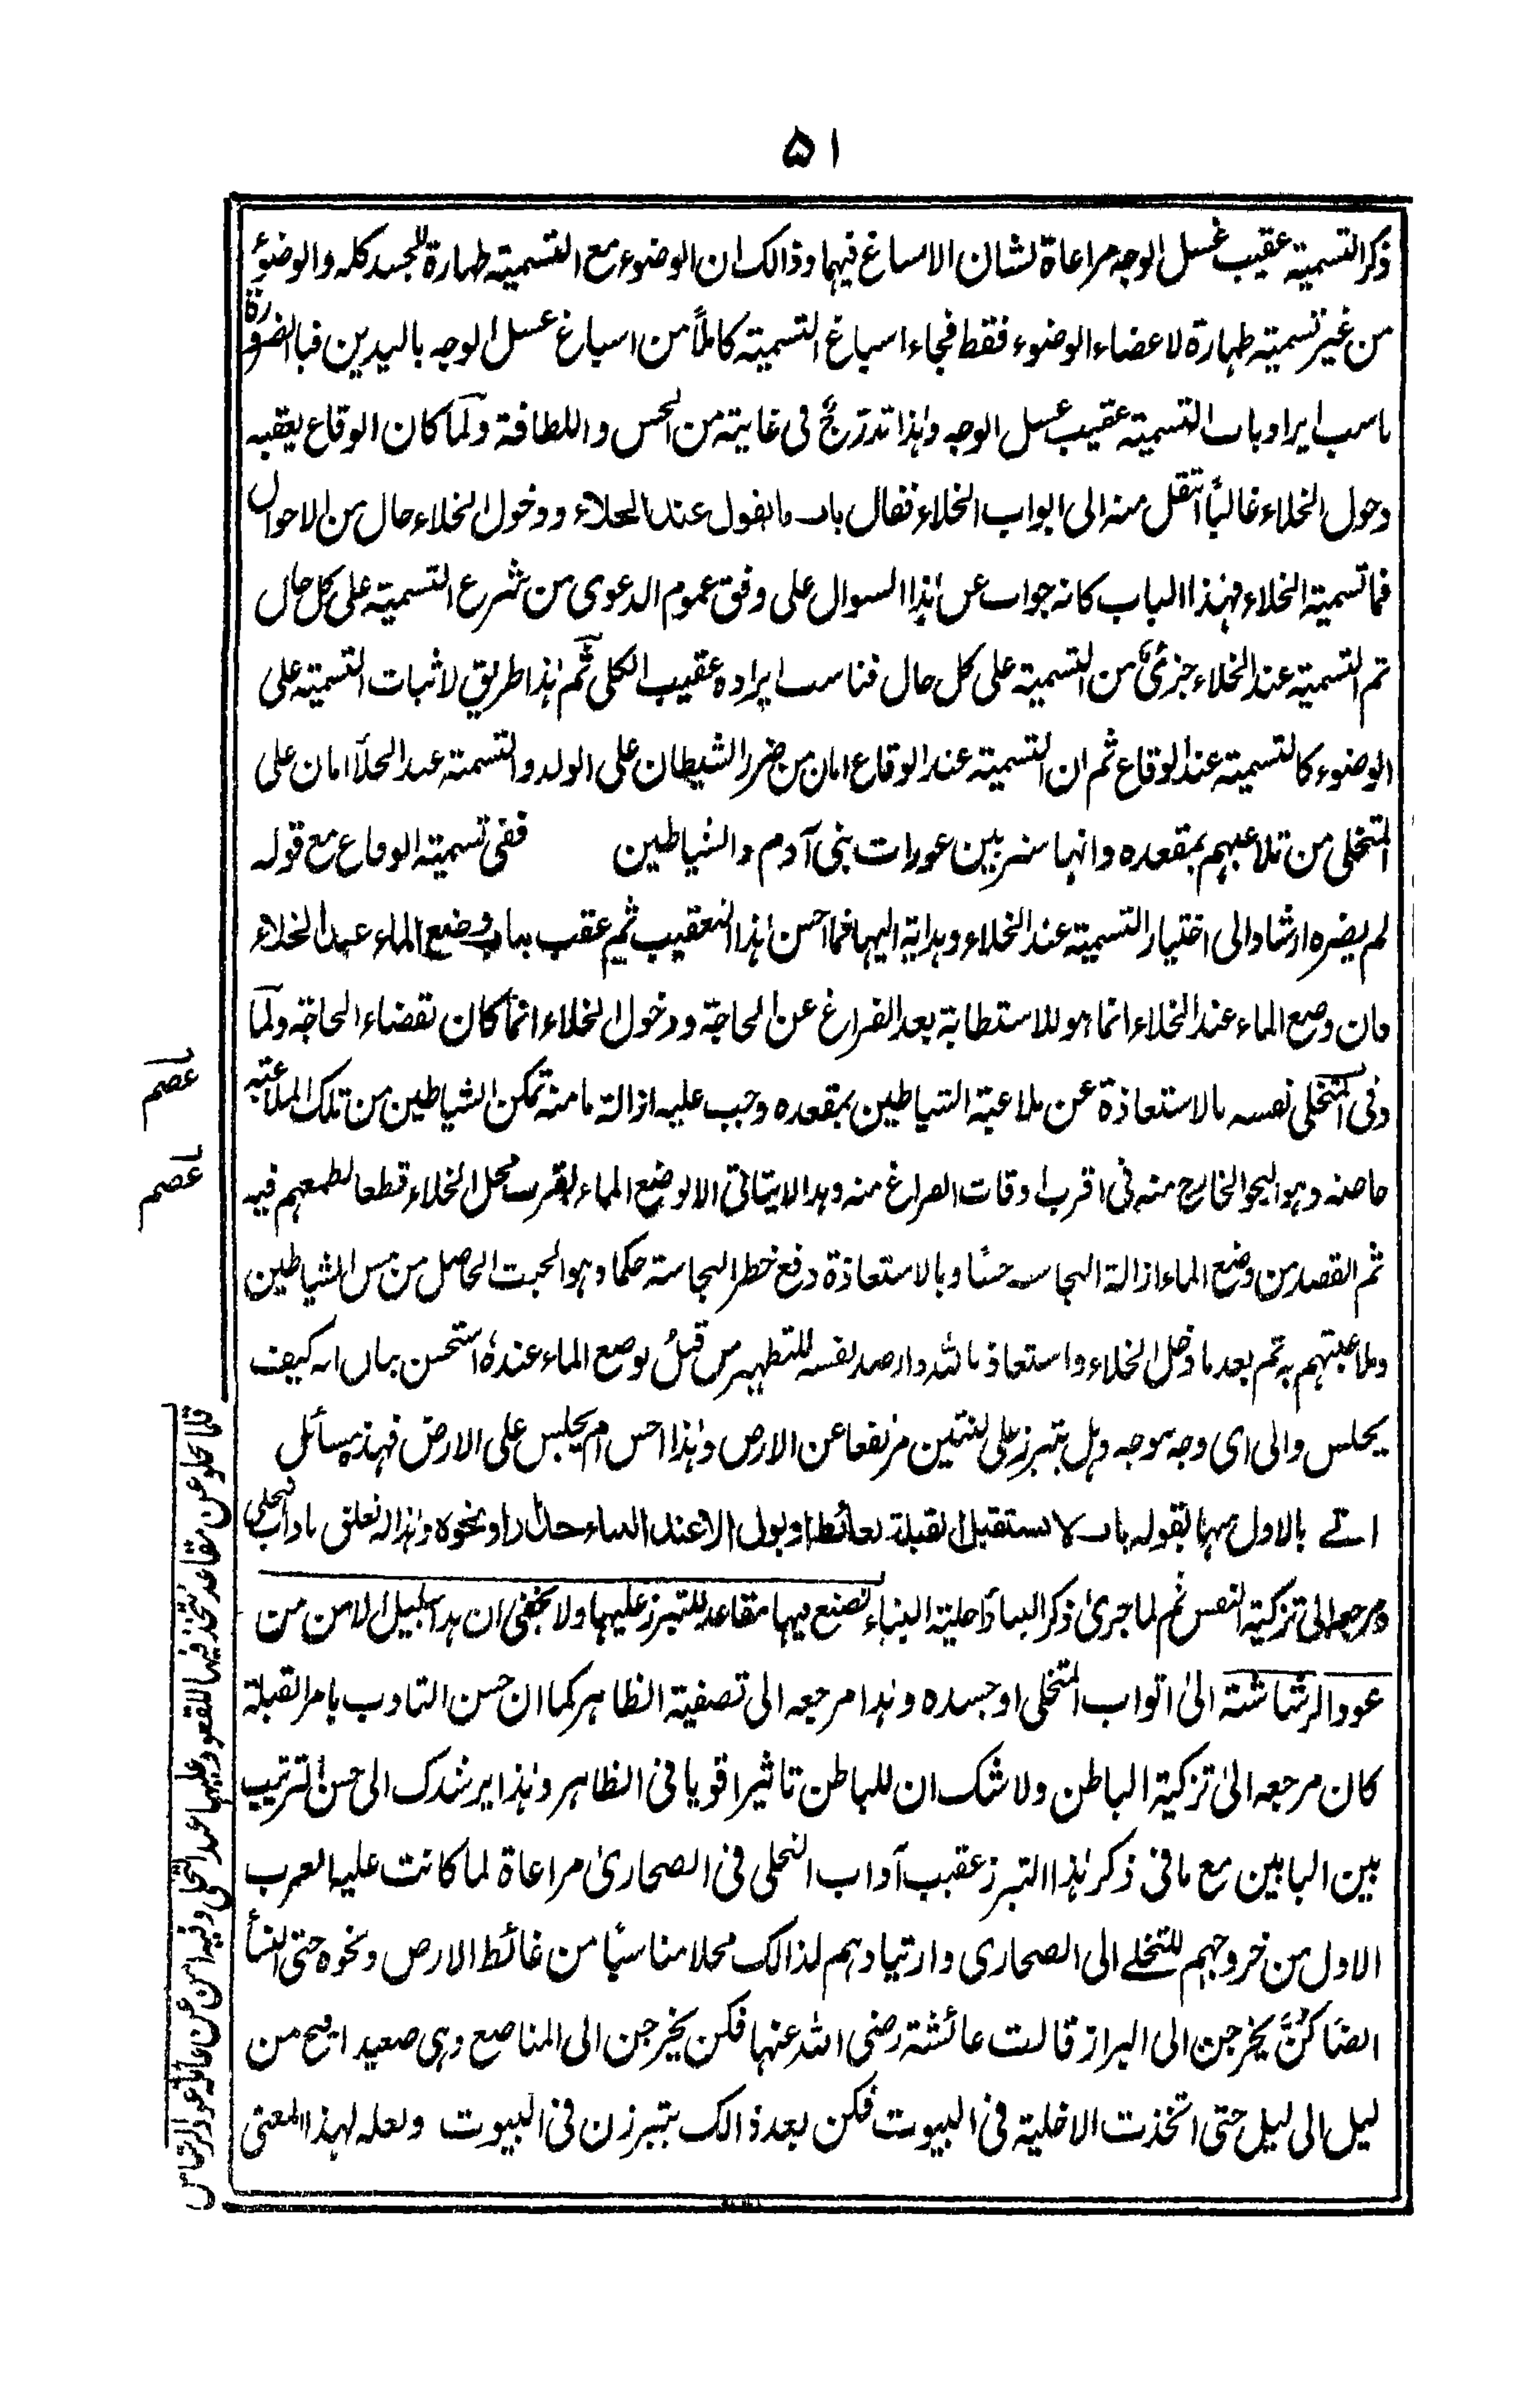 ۵۱
ذکر التسمیة عقیب غسل الوجه مراعاة لشان الاسباغ فیهما وذالک ان الوضوء مع التسمیة طهارة للجسد کله والوضوء
من غیر تسمیة طهارة لاعضاء الوضوء فقط فجاء اسباغ التسمیة کاملاً من اسباغ غسل الوجه بالیدین فبالضرورة
ناسب ایراد باب التسمیة عقیب غسل الوجه وهٰذا تدرّجٌ فی غایة من الحسن واللطافة ولمّا کان الوقاع یعقبه
دخول الخلاء غالباً انتقل منه الی ابواب الخلاء فقال باب ما یقول عند الخلاء ودخول الخلاء حال من الاحوال
فما تسمیة الخلاء فهٰذا الباب کانه جواب عن هٰذا السوال علی وفق عموم الدعوی من شرع التسمیة علی کل حال
ثم التسمیة عند الخلاء جزئیٌ من التسمیة علی کل حال فناسب ایراده عقیب الکلی ثم هٰذا طریق لاثبات التسمیة علی
الوضوء کالتسمیة عند الوقاع ثم ان التسمیة عند الوقاع امان من ضرر الشیطان علی الولد والتسمیة عند الخلأ امان علی
المتخلی من تلاعبهم بمقعده وانها ستر بین عورات بنی آدم والشیاطین ففی تسمیة الوقاع مع قوله
لم یضره ارشاد الی اختیار التسمیة عند الخلاء وهدایة الیها فما احسن هٰذا التعقیب ثم عقب بباب وضع الماء عند الخلاء
فان وضع الماء عند الخلاء انما هو للاستطابة بعد الفراغ عن الحاجة ودخول الخلاء انما کان لقضاء الحاجة ولمّا
وقی المتخلی نفسه بالاستعاذة عن ملاعبة الشیاطین بمقعده وجب علیه ازالة ما منه تمکن الشیاطین من تلک الملاعبة
خاصة وهو النجو الخارج منه فی اقرب اوقات الفراغ منه وهذا لا یتاتی الا بوضع الماء بقرب محل الخلاء قطعا لطمعهم فیه
ثم القصد من وضع الماء ازالة النجاسة حسًا وبالاستعاذة دفع خطر النجاسة حکما وهو الخبث الحاصل من مس الشیاطین
وملاعبتهم به ثم بعد ما دخل الخلاء واستعاذ بالله وارصد نفسه للتطهیر من قبلُ بوضع الماء عنده استحسن بیان انه کیف
یجلس والی ای وجه یوجه وهل یتبرز علی لبنتین مرتفعا عن الارض وهٰذا احسن ام یجلس علی الارض فهذه مسائل
اتے بالاول منها بقوله باب لا یستقبل القبلة بغائط او بول الا عند البناء جدار او نحوه وهٰذا له تعلق باداب التخلی
ومرجعه الی تزکیة النفس ثم لما جریٰ ذکر البناء واخلیة البناء تصنع فیها مقاعد للتبرز علیها ولا یخفی ان هذا سبیل الامن من
عود الرشاشة الیٰ اثواب المتخلی او جسده وهٰذا مرجعه الی تصفیة الظاهر کما ان حسن التادب بامر القبلة
کان مرجعه الیٰ تزکیة الباطن ولا شک ان للباطن تاثیرا قویا فی الظاهر وهٰذا یرشدک الی حسن الترتیب
بین البابین مع ما فی ذکر هٰذا التبرز عقیب آداب التخلی فی الصحاریٰ مراعاة لما کانت علیه العرب
الاول من خروجهم للتخلے الی الصحاری وارتیادهم لذالک محلا مناسبًا من غائط الارض ونحوه حتی النسأ
ایضًا کنَّ یخرجن الی البراز قالت عائشة رضی الله عنها فکن یخرجن الی المناصع وهی صعید افیح من
لیل الی لیل حتی اتخذت الاخلیة فی البیوت فکن بعد ذالک یتبرزن فی البیوت ولعله لهذا المعنی
عصم
عصم
قلما یخلو عن مقاعد یتخذ فیها للقعود علیها عند التخلی وفیه امن عن غائلة عود الرشاش